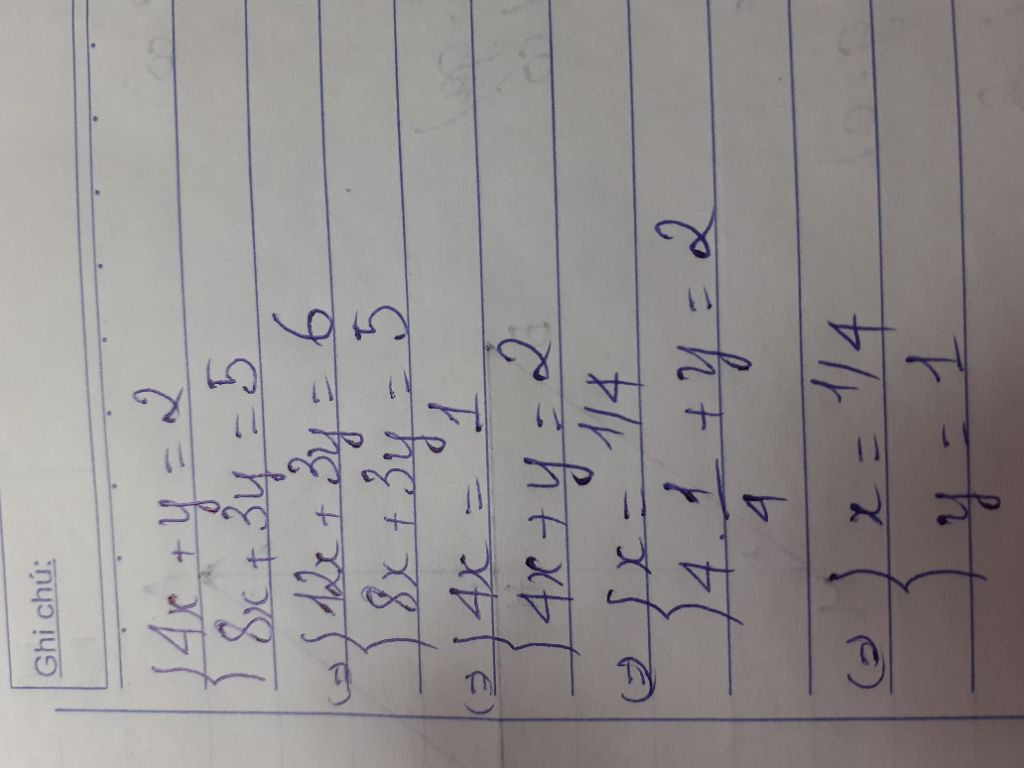 Ghi chú:
{4x + y = 2
{8x + 3y = 5
(=) {12x + 3y = 6
{8x + 3y = 5
(=) {4x = 1
{4x + y = 2
(=) {x = 1/4
{4 . 1/4 + y = 2
(=) {x = 1/4
{y = 1